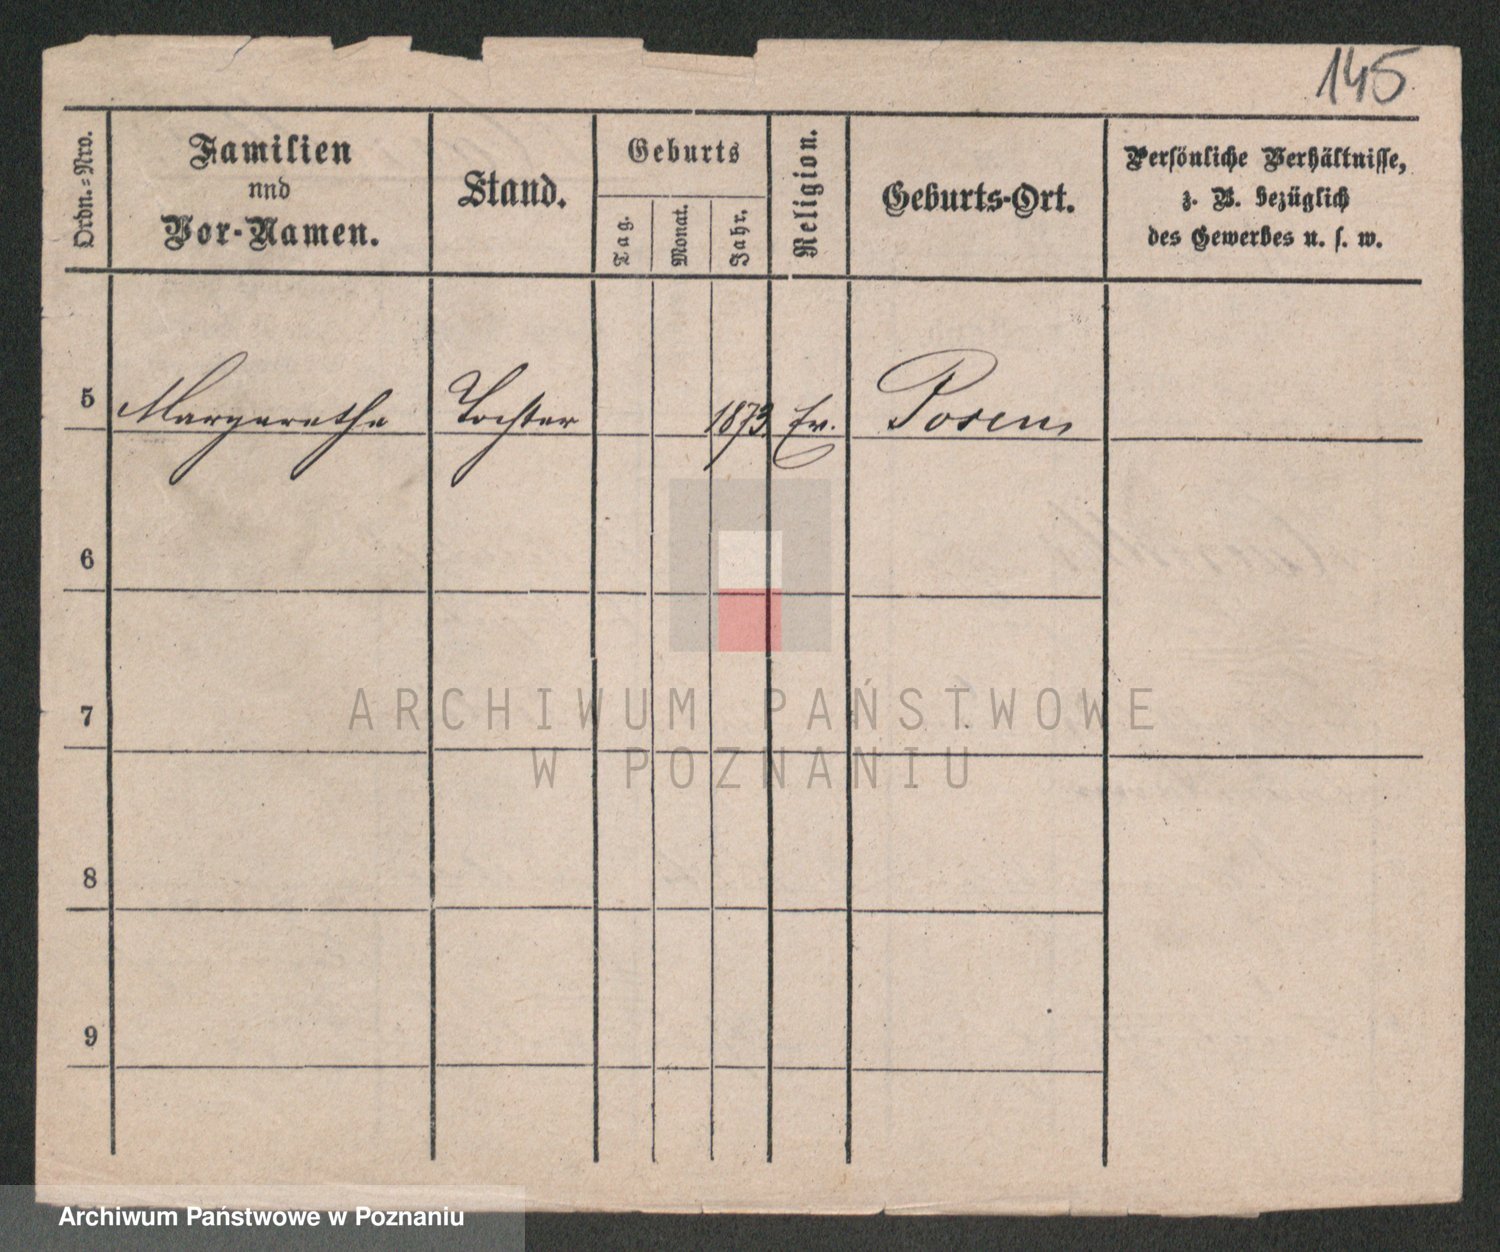 145
Ordn.=Nro.
Familien
nnd
Vor-Namen.
Stand.
Geburts
Tag.
Monat.
Jahr.
Religion.
Geburts-Ort.
Persönliche Verhältnisse,
z. B. bezüglich
des Gewerbes u. s. w.
5 Margarethe Tochter 1873 Ev. Posen
6
7
ARCHIWUM PAŃSTWOWE
W POZNANIU
8
9
Archiwum Państwowe w Poznaniu